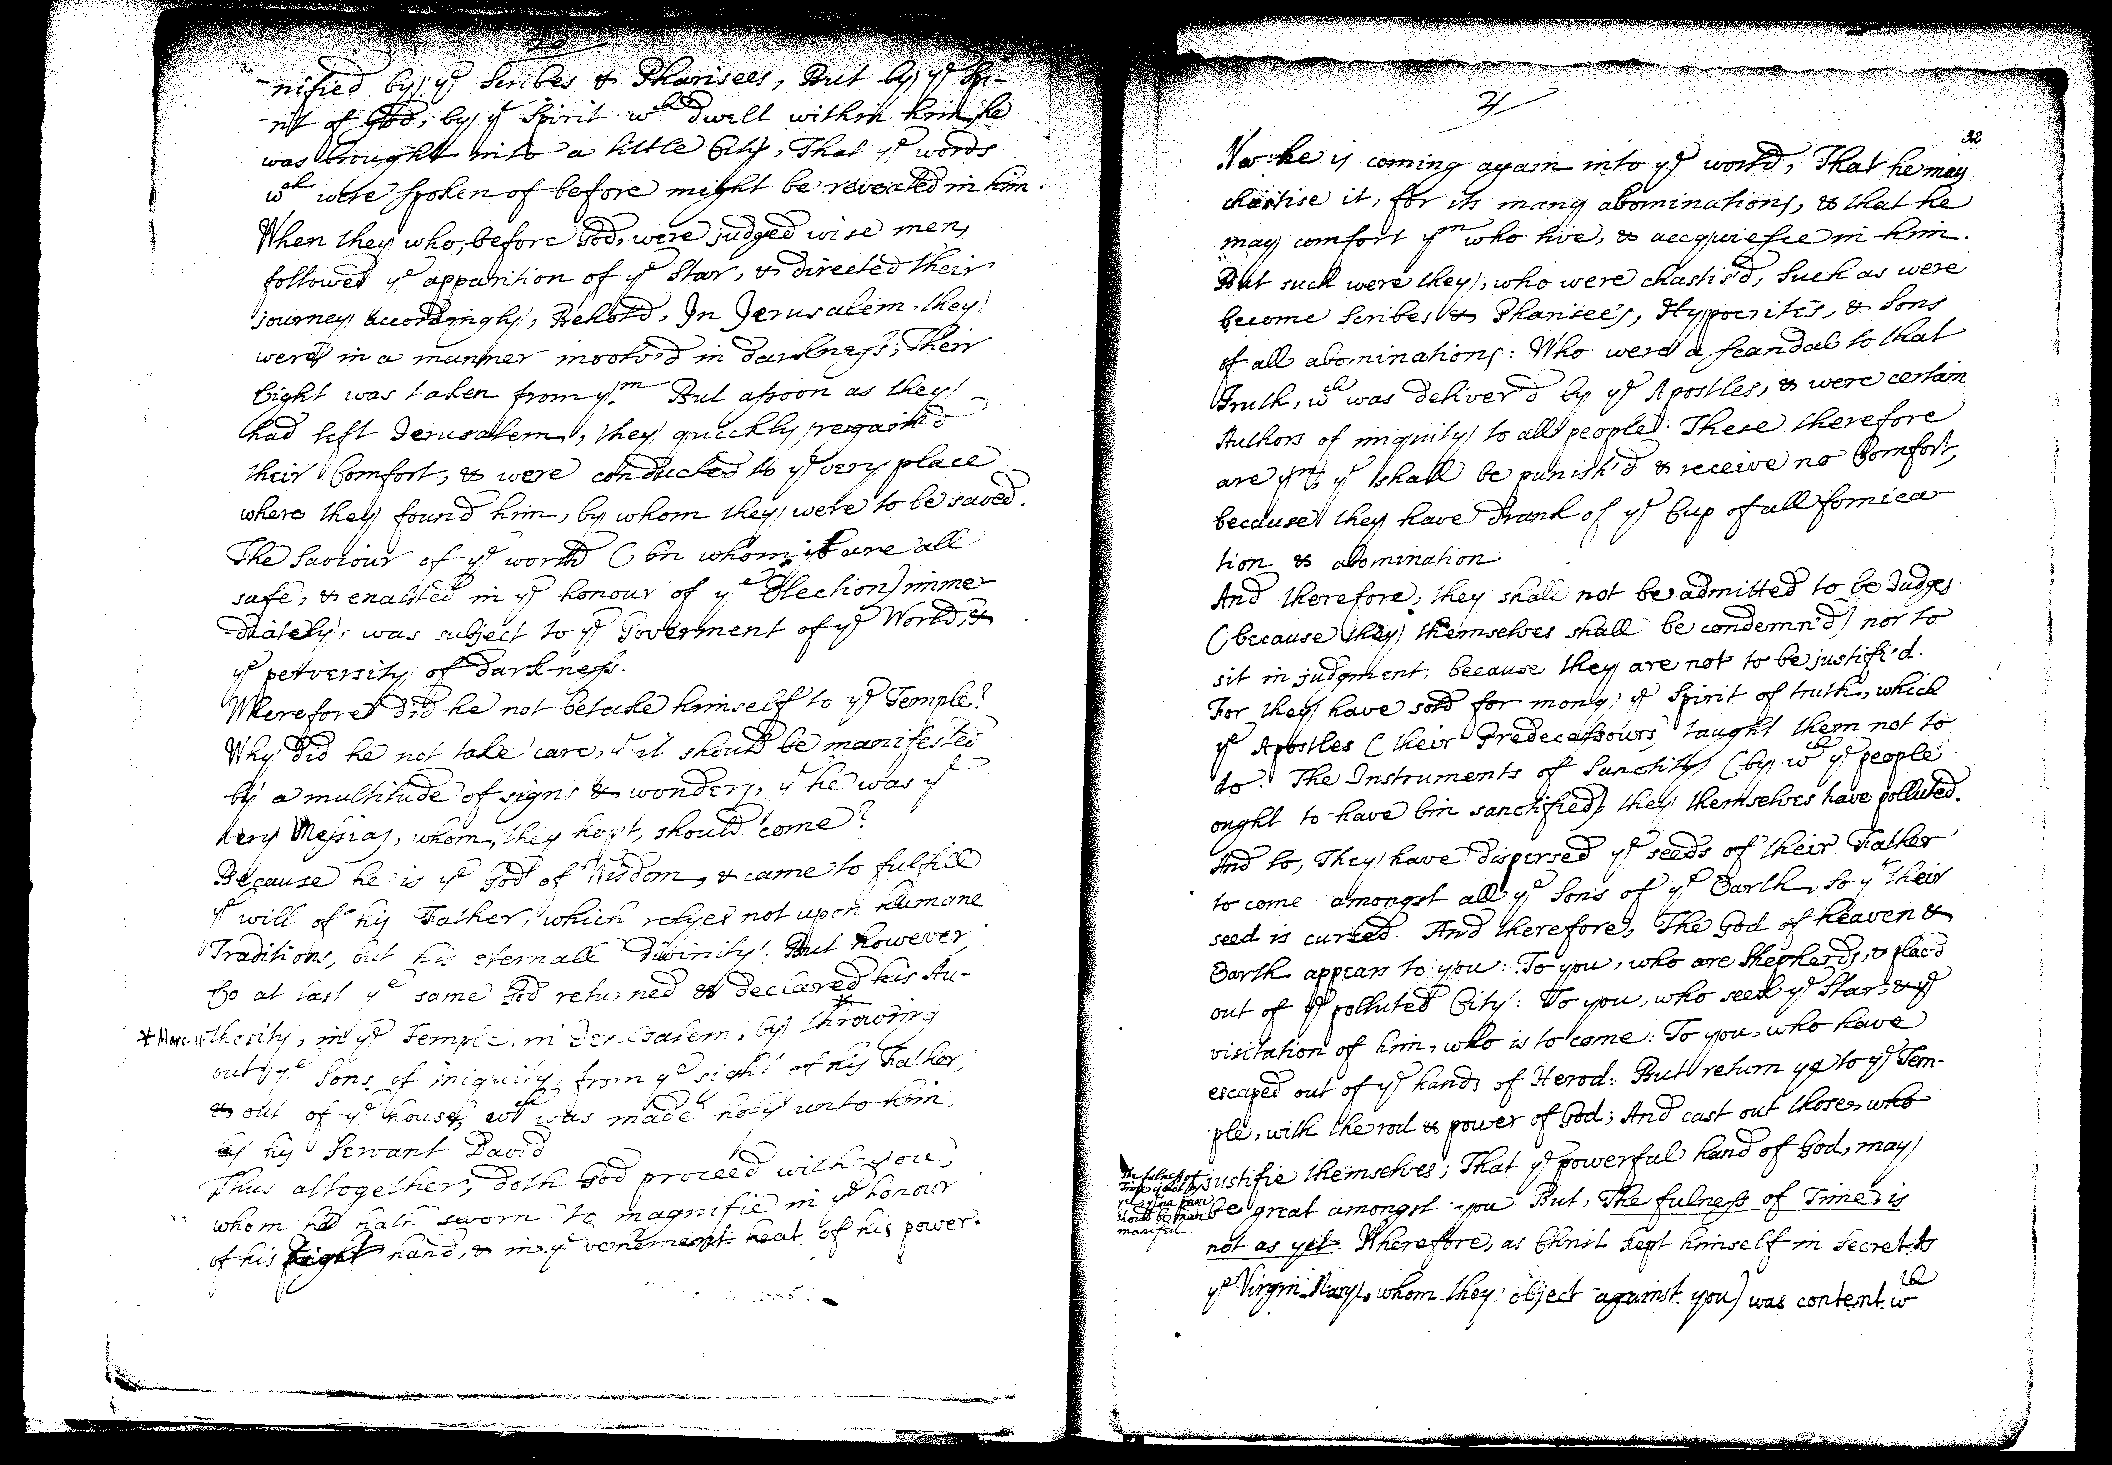 nified by yᵉ Scribes & Pharisees, But by yᵉ Spi-
rit of God; by yᵉ Spirit wᶜʰ dwelt within him he
was brought into a little City, That yᵉ words
wᶜʰ were spoken of before might be revealed in him.
When they who, before God, were judged wise men,
followed yᵉ apparition of yᵉ Star, & directed their
journey accordingly, Behold, In Jerusalem they
were in a manner involv'd in darkness; Their
Light was taken from yᵐ. But assoon as they
had left Jerusalem, they quickly regain'd
their Comfort, & were conducted to yᵉ very place
where they found him, by whom they were to be saved.
The Saviour of yᵉ world (on whom are all
safe, & enabled in yᵉ honour of yᵉ Election) imme-
diately, was subject to yᵉ Goverment of yᵉ World, &
yᵉ perversity of darkness.
Wherefore did he not betake himself to yᵉ Temple?
Why did he not take care, yᵗ it should be manifested
by a multitude of signs & wonders, yᵗ he was yᵉ
very Messias, whom, they hop't, should come?
Because he is yᵉ God of Wisdom, & came to fulfill
yᵉ will of his Father, which relyes not upon humane
Traditions, but his eternall Divinity. But however
So at last yᵉ same God returned & declared his Au-
* Marc. 11 thority, in yᵉ Temple, in Jerusalem, by * throwing
out yᵉ Sons of iniquity from yᵉ sight of his Father,
& out of yᵉ house, wᶜʰ was made holy unto him
by his Servant David
Thus altogether, doth God proceed with you,
whom he hath sworn to magnifie in yᵉ honour
of his right hand, & in yᵉ vehement heat of his power.
21
32
Now he is coming again into yᵉ world, That he may
chastise it, for its many abominations, & that he
may comfort yᵐ who live, & acquiesce in him.
But such were they, who were chastis'd, Such as were
become Scribes & Pharisees, Hypocrites, & Sons
of all abominations: Who were a scandal to that
Truth, wᶜʰ was deliver'd by yᵉ Apostles, & were certain
Authors of iniquity to all people. These therefore
are yᵐ yᵗ shall be punish'd & receive no Comfort,
because they have Drank of yᵉ Cup of all fornica-
tion & abomination.
And therefore, they shall not be admitted to be Judges
(because they themselves shall be condemn'd) nor to
sit in judgment, because they are not to be justifi'd.
For they have sold for mony yᵉ Spirit of truth, which
yᵉ Apostles (their Predecessours) taught them not to
do. The Instruments of Sanctity (by wᶜʰ yᵉ people
ought to have bin sanctified) they themselves have polluted.
And lo, They have dispersed yᵉ seeds of their Father
to come amongst all yᵉ Sons of yᵉ Earth, so yᵗ their
seed is cursed. And therefore, The God of heaven &
Earth appears to you: To you, who are Shepherds, & plac'd
out of yᵉ polluted City: To you, who seek yᵉ Star, & yᵉ
visitation of him, who is to come: To you, who have
escaped out of yᵉ hands of Herod: But return ye to yᵉ Tem-
ple, with the rod & power of God; And cast out those, who
justifie themselves; That yᵉ powerful hand of God, may
be great amongst you But, The fulness of Time is
not as yet. Wherefore, as Christ kept himself in Secret, &
yᵉ Virgin Mary, whom they object against you) was content wᵗʰ
The fulness of
Time is not as
yet
should be